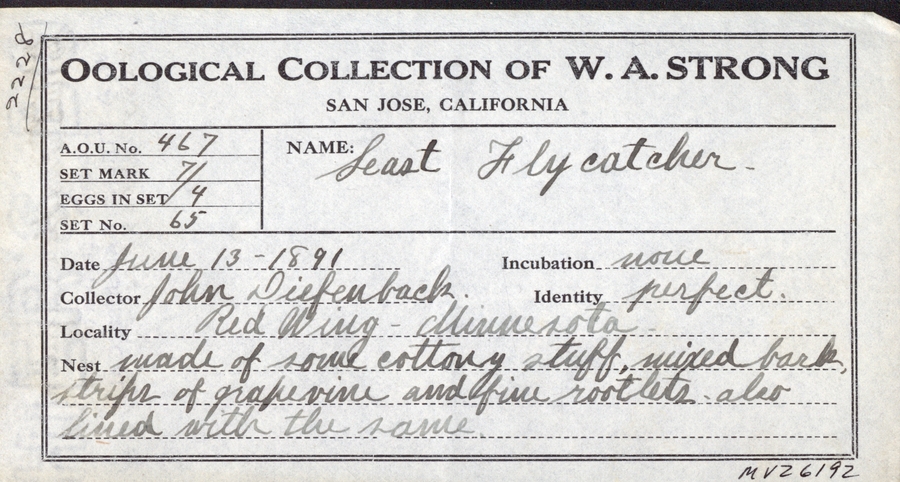 2228
OOLOGICAL COLLECTION OF W. A. STRONG
SAN JOSE, CALIFORNIA
A.O.U. No. 467
SET MARK 7/1
EGGS IN SET 4
SET No. 65
NAME: Least Flycatcher.
Date June 13-1891 Incubation none
Collector John Diefenback. Identity perfect.
Locality Red Wing - Minnesota
Nest made of some cottony stuff, mixed bark,
strips of grapevine and fine rootlets. also
lined with the same.
MVZ6192